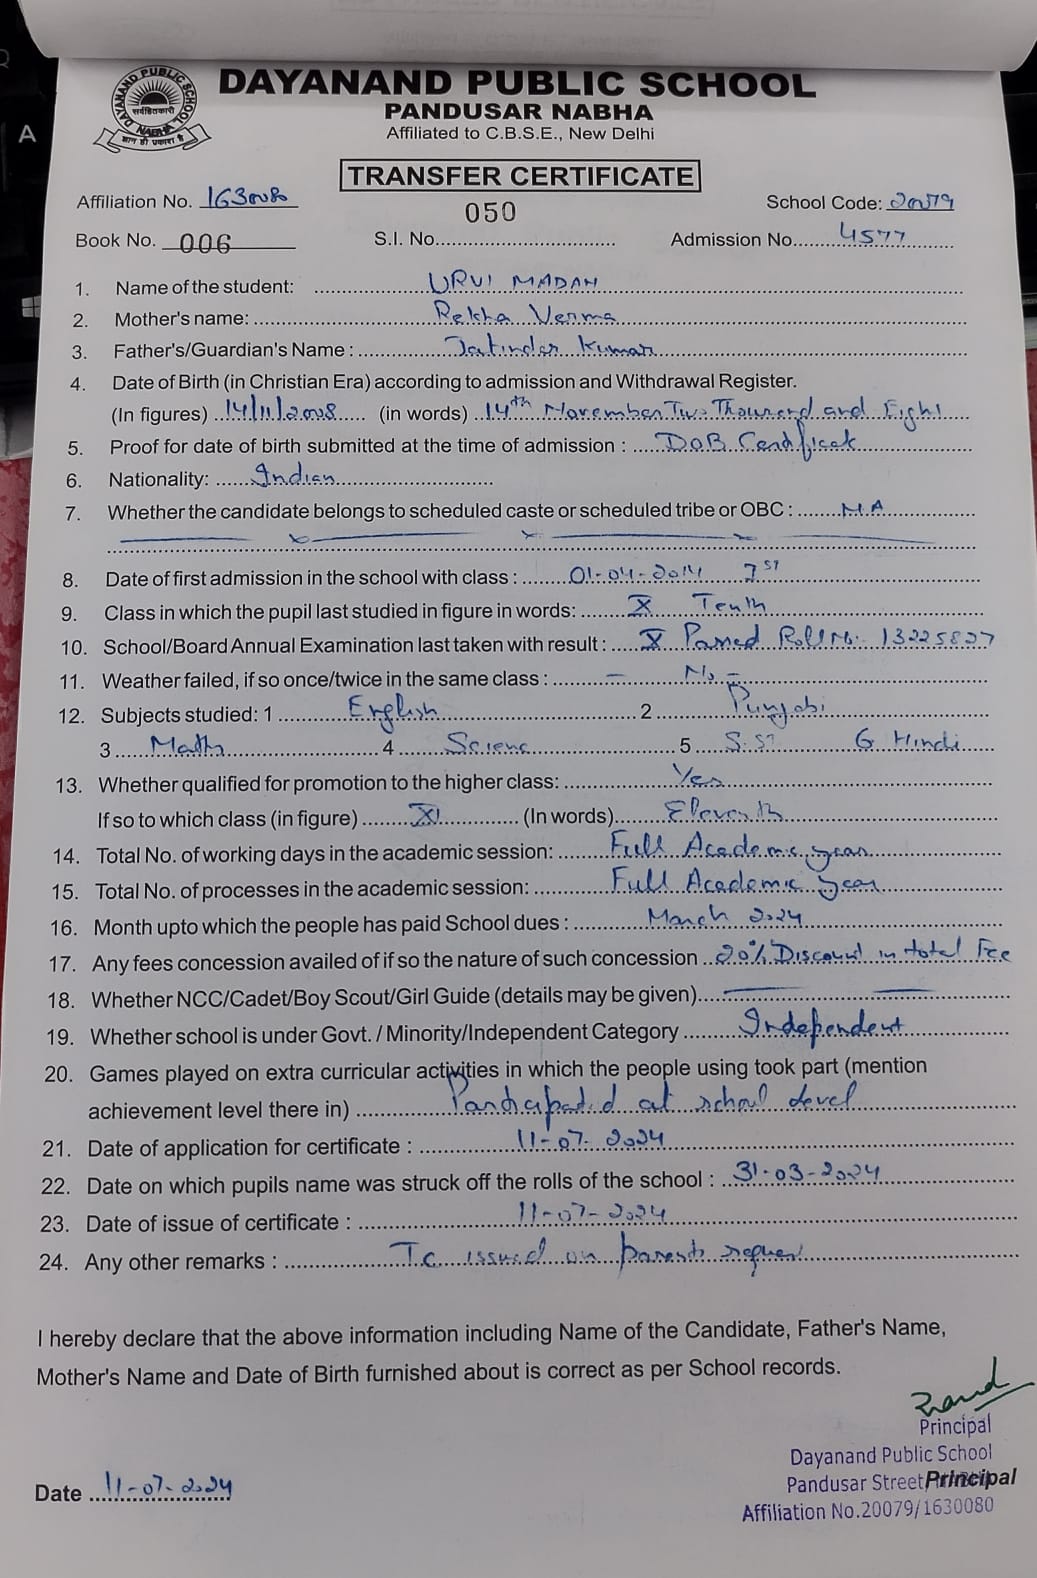 DAYANAND PUBLIC SCHOOL
PANDUSAR NABHA
Affiliated to C.B.S.E., New Delhi
DAYANAND PUBLIC SCHOOL
सर्वहितकारी
NABHA
ज्ञान ही प्रकाश है
TRANSFER CERTIFICATE
Affiliation No. 1630080
050
School Code: 20079
Book No. 006 S.I. No. Admission No. 4577
1. Name of the student: URVI MADAN
2. Mother's name: Rekha Verma
3. Father's/Guardian's Name : Jatinder Kumar
4. Date of Birth (in Christian Era) according to admission and Withdrawal Register.
(In figures) 14/11/2008 (in words) 14th November Two Thousand and Eight
5. Proof for date of birth submitted at the time of admission : DOB Certificate
6. Nationality: Indian
7. Whether the candidate belongs to scheduled caste or scheduled tribe or OBC : NA
8. Date of first admission in the school with class : 01-04-2014 Ist
9. Class in which the pupil last studied in figure in words: X Tenth
10. School/Board Annual Examination last taken with result : X Passed Roll No. 13225827
11. Weather failed, if so once/twice in the same class : – No –
12. Subjects studied: 1 English 2 Punjabi
3 Math 4 Scienc 5 S.St 6 Hindi
13. Whether qualified for promotion to the higher class: Yes
If so to which class (in figure) XI (In words) Eleventh
14. Total No. of working days in the academic session: Full Academic year
15. Total No. of processes in the academic session: Full Academic year
16. Month upto which the people has paid School dues : March 2024
17. Any fees concession availed of if so the nature of such concession 20% Discount in total Fee
18. Whether NCC/Cadet/Boy Scout/Girl Guide (details may be given)
19. Whether school is under Govt. / Minority/Independent Category Independent
20. Games played on extra curricular activities in which the people using took part (mention
achievement level there in) Participated at school level
21. Date of application for certificate : 11-07-2024
22. Date on which pupils name was struck off the rolls of the school : 31-03-2024
23. Date of issue of certificate : 11-07-2024
24. Any other remarks : T.C issued on parents request
I hereby declare that the above information including Name of the Candidate, Father's Name,
Mother's Name and Date of Birth furnished about is correct as per School records.
Principal
Dayanand Public School
Pandusar Street Principal
Affiliation No.20079/1630080
Date 11-07-2024